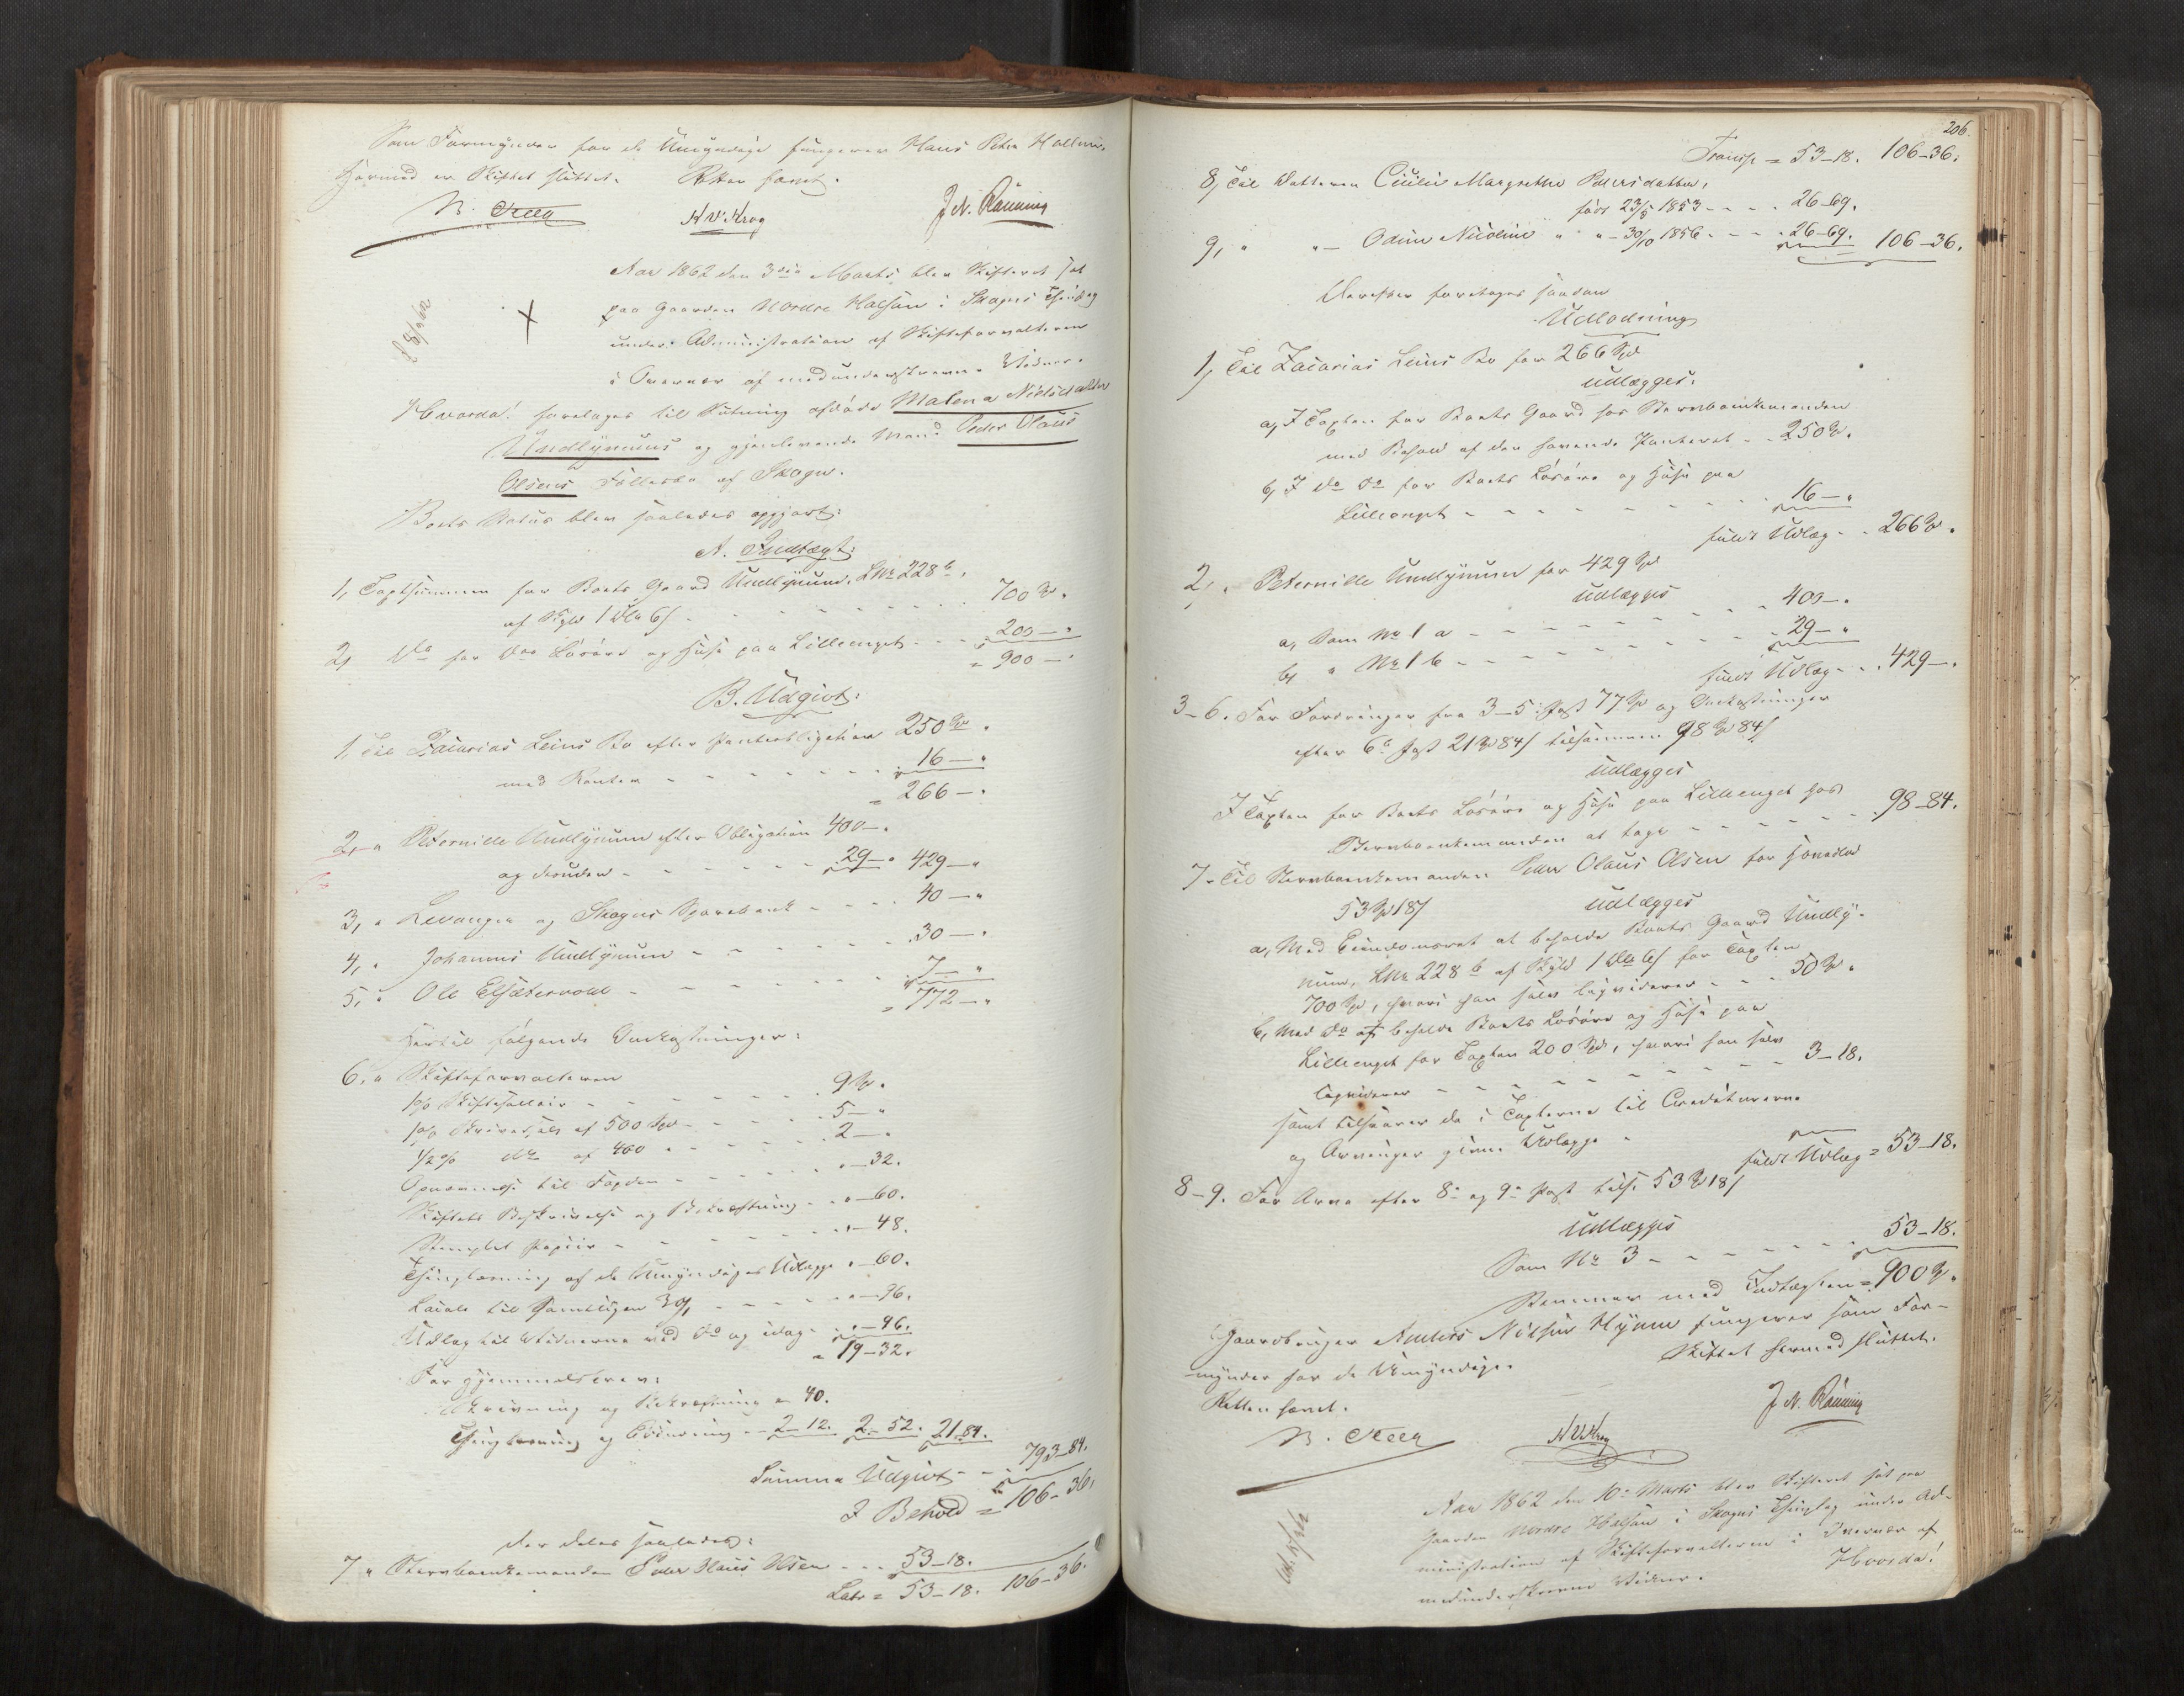 Som Formynder for de Umyndige fungerer Hans Peter Hallum.
Hermed er Skiftet sluttet. Retten hævet.
N. Kreg A V Krog J. N. Rønning
Aar 1862 den 3die Marts blev Skifteret sat
paa Gaarden Nordre Halsan i Skogns Thinglag
under Administration af Skifteforvalteren
i Overvær af medunderskrevne Vidner.
Hvorda! foretages til Slutning afdøde Malena Nielsdatter
Undlynums og gjenlevende Mand Peder Olaus
Olsens Fællesbo af Skogn.
Boets Status blev saaledes opgjort:
A. Indtægt:
1, Taxtsummen for Boets Gaard Undlynum, LNr 228 b,
af Skyld 1 Dlr 6 s - - - 700 Spd.
2, Do for dets Løsøre og Huse paa Lilleenget - - - 200 – "
= 900 – "
B. Udgivt:
1, Til Zacarias Leins Bo efter Panteobligation 250 Spd.
med Renter - - - 16 – "
= 266 – "
2, " Peternille Undlynum efter Obligation 400 – "
og desuden - - - 29 – " 429 – "
3, " Levanger og Skogns Sparebank - - - 40 – "
4, " Johannes Undlynum - - - 30 – "
5, " Ole Elsætervold - - - 7 – "
= 772 – "
Hertil følgende Omkostninger:
6, " Skifteforvalteren
1 % Skiftesallair - - - 9 Spd.
1 % af 500 Spd - - - 5 – "
1/2 % do af 400 " - - - 2 – "
til Fogden - - - " – 32.
Skiftets Beskrivelse og Bekræftning - - " – 60.
Stemplet Papiir - - - " – 48.
Thinglæsning af de Umyndiges Udlægge " – 60.
Locale til Samlingen 3 g - - - " – 36.
Udlæg til Vidnerne ved Do og idag - " – 96.
" 19 – 32.
For Hjemmelsbrev:
Skrivning og Bekræftning " 40.
Thinglæsning og – 2 – 12. 2 – 52. 21 84.
Summa Udgivt - - 793 – 84.
I Behold = 106 – 36.
der deles saaledes:
7 " Stervboenkemanden Peder Olaus Olsen - - - 53 – 18.
Lats = 53 – 18. 106 – 36.
206.
Transp = 53 – 18. 106 – 36.
8, Til Datteren Cicilie Margrethe Pedersdatter,
født 23/5 1853 - - - 26 – 69.
9, " " – Odine Nicoline " " – 30/10 1856 - - - 26 – 69. 106 – 36.
Derefter foretages saadan
Udlodning
1, Til Zacarias Leins Bo for 266 Spd
udlægges:
a, I Taxten for Boets Gaard hos Stervboenkemanden
med Behold af den havende Panteret - - 250 Spd.
b, I do do for Boets Løsøre og Huse paa
Lilleenget - - - 16 – "
fuldt Udlæg - - 266 Spd.
2, " Peternille Undlynum for 429 Spd
udlægges
a, Som No 1 a - - - 400 – "
b, " No 1 b - - - 29 – "
fuldt Udlæg - - 429 – "
3–6. For Fordringer fra 3–5 Post 77 Spd og Omkostninger
efter 6te Post 21 Spd 84 s tilsammen 98 Spd 84 s
udlægges
I Taxten for Boets Løsøre og Huse paa Lilleenget hos
Stervboenkemanden at tage - - - 98 – 84.
7. Til Stervboenkemanden Peder Olaus Olsen for Hovedlod
53 Spd 18 s udlægges
a, Med Eiendomsret at beholde Boets Gaard Undly-
num, LNr 228 b af Skyld 1 Dlr 6 s for Taxten
700 Spd, hvori han selv liqviderer - - 50 Spd.
b, Med do at beholde Boets Løsøre og Huse paa
Lilleenget for Taxten 200 Spd, hvori han selv
liqviderer - - - 3 – 18.
samt tilsvarer de i Taxterne til Creditorerne
og Arvinger givne Udlægge.
fuldt Udlæg = 53 – 18.
8–9. For Arve efter 8de og 9de Post tils. 53 Spd 18 s
udlægges
Som No 3 - - - 53 – 18.
Stemmer med Indtægten = 900 Spd.
Gaardbruger Anders Nilsen Hynne fungerer som For-
mynder for de Umyndige. Skiftet hermed sluttet.
Retten hævet.
N. Kreg A V Krog J. N. Rønning
Aar 1862 den 10de Marts blev Skifteret sat paa
Gaarden Nordre Halsan i Skogns Thinglag under Ad-
ministration af Skifteforvalteren i Overvær af
medunderskrevne Vidner. Hvorda!